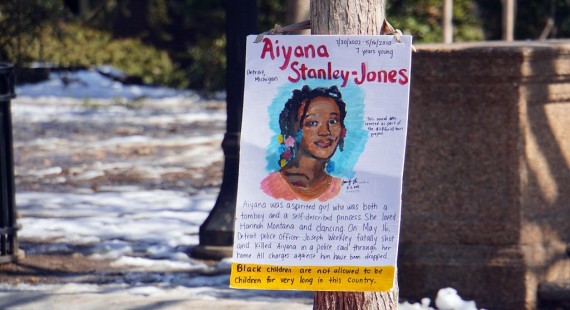 Aiyana
7/20/2002 - 5/16/2010
7 years young
Detroit,
Michigan
Stanley-Jones
This sound was
created as part of
project.
Aiyana was a spirited girl who was both a
tomboy and a self-described princess. She loved
Hannah Montana and dancing. On May 16,
Detroit police officer Joseph Weekley fatally shot
and killed Aiyana in a police raid through her
home. All charges against him have been dropped.
Black children are not allowed to be
children for very long in this country.